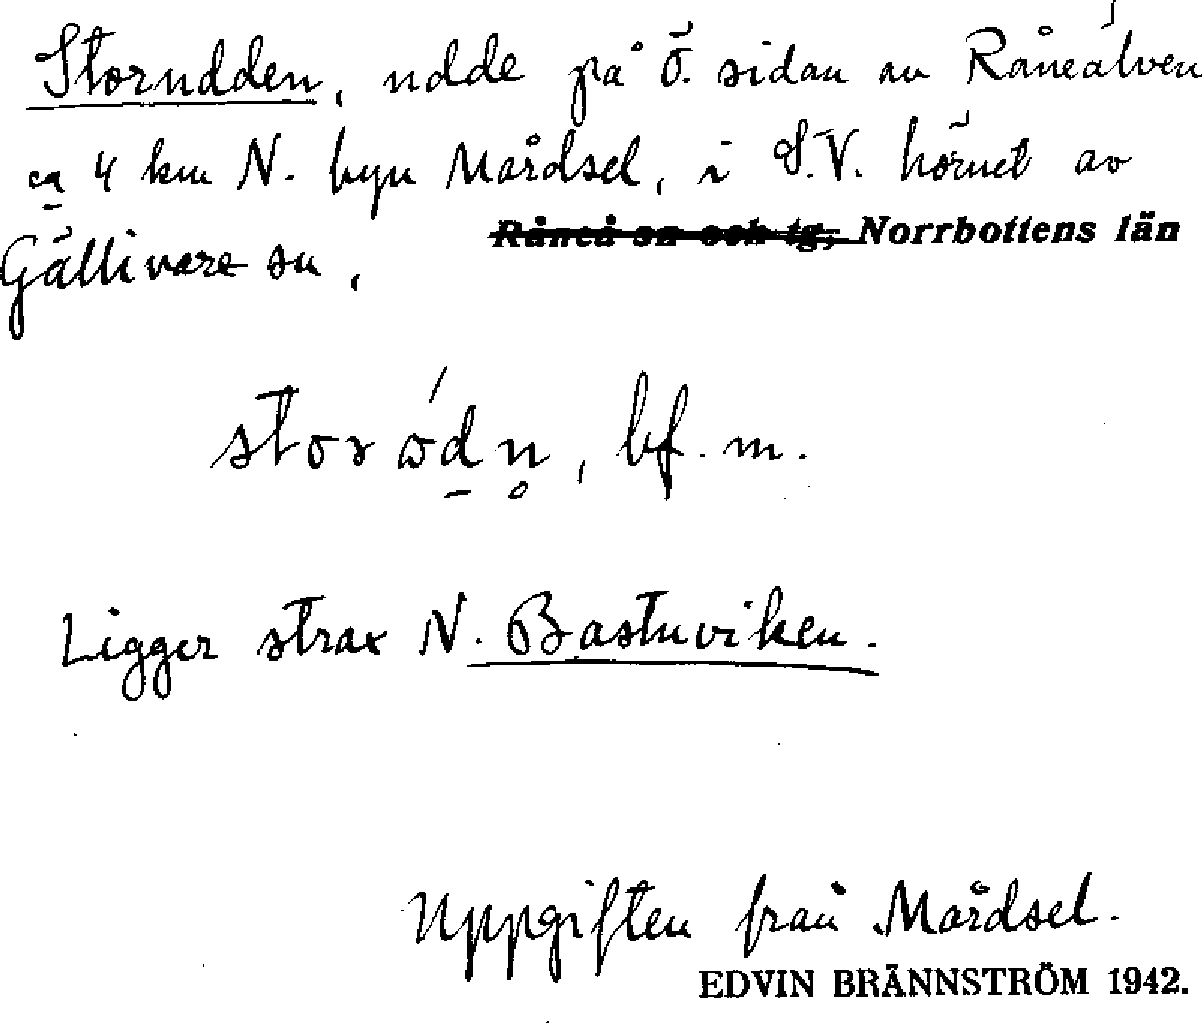 Storudden, udde på ö. sidan av Råneälven
ca 4 km N. byn Mårdsel, i S.V. hörnet av
Gällivare sn.
Råneå sn och tg, Norrbottens län
bf. m.
Ligger strax N. Bastuviken.
Uppgiften från Mårdsel.
EDVIN BRÄNNSTRÖM 1942.